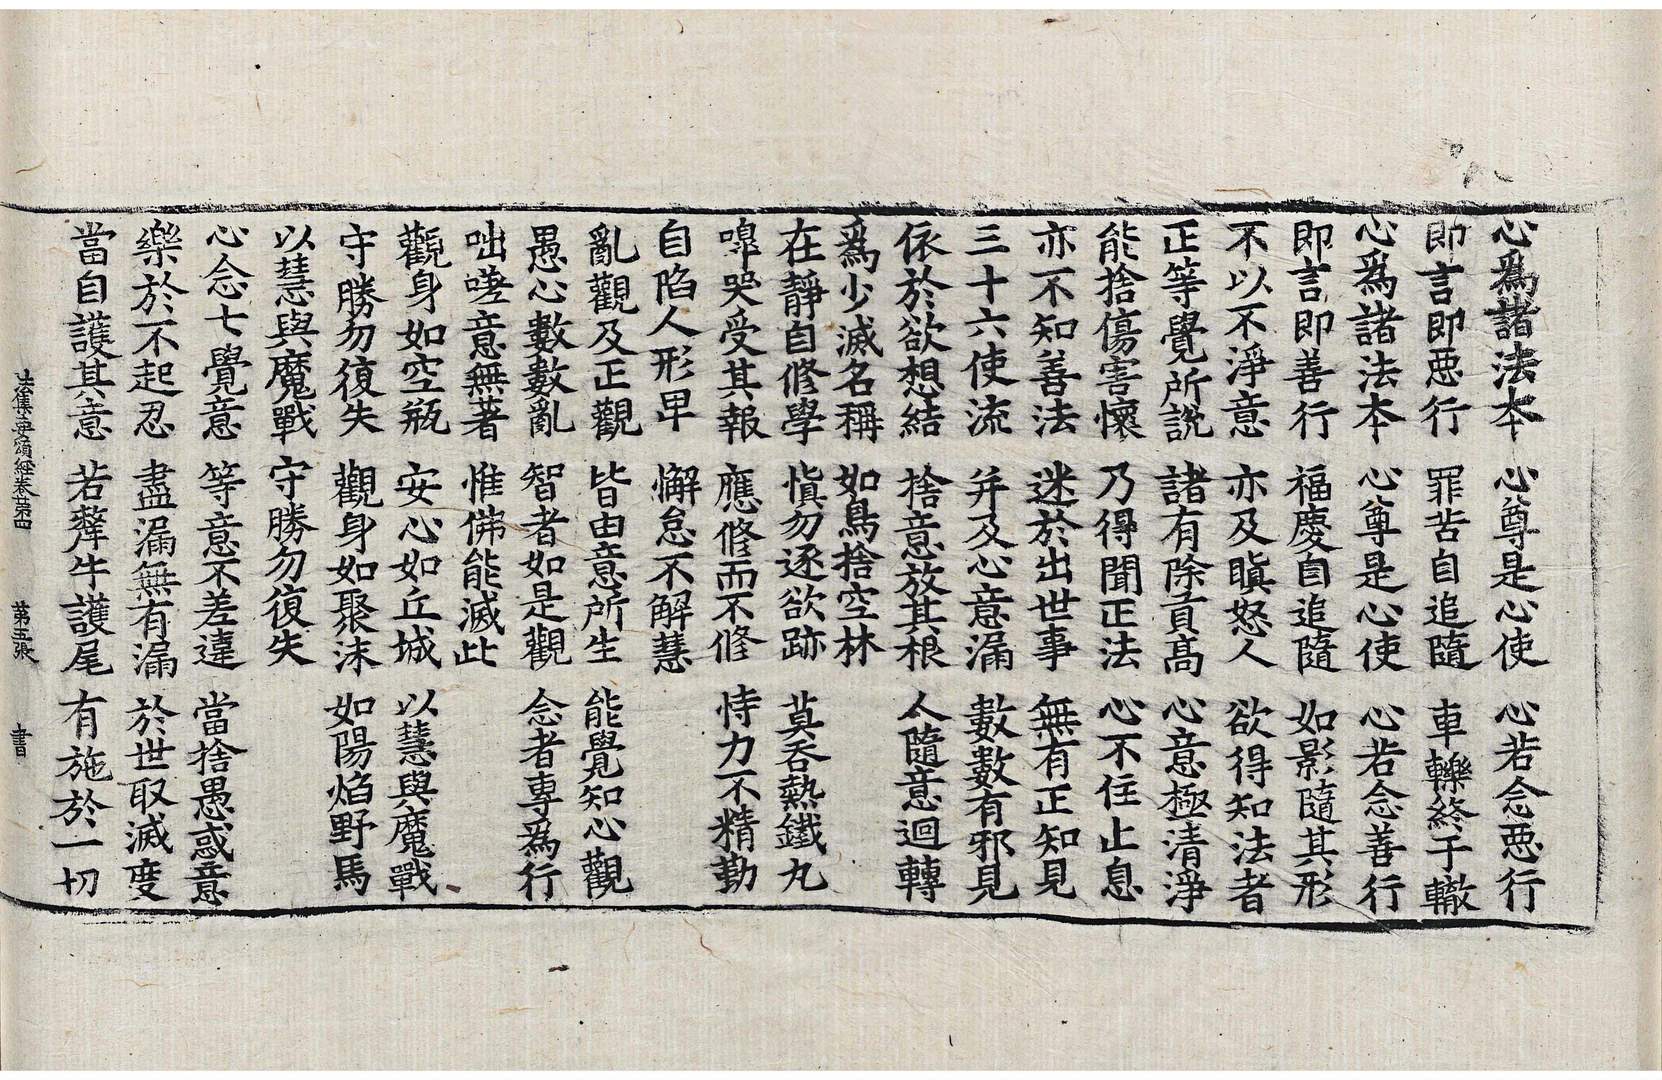 心爲諸法本 心尊是心使 心若念悪行
即言即悪行 罪苦自追隨 車轢終于轍
心爲諸法本 心尊是心使 心若念善行
即言即善行 福慶自追隨 如影隨其形
不以不淨意 亦及瞋怒人 欲得知法者
正等覺所説 諸有除貢髙 心意極清淨
能捨傷害懷 乃得聞正法 心不住止息
亦不知善法 迷於出世事 無有正知見
三十六使流 并及心意漏 數數有邪見
依於欲想結 捨意放其根 人隨意迴轉
爲少滅名稱 如鳥捨空林
在静自修學 愼勿逐欲跡 莫吞熱鐵丸
嘷哭受其報 應修而不修 恃力不精勤
自陷人形卑 懈怠不解慧
亂觀及正觀 皆由意所生 能覺知心觀
愚心數數亂 智者如是觀 念者專爲行
咄嗟意無著 惟佛能滅此
觀身如空瓶 安心如丘城 以慧與魔戰
守勝勿復失 觀身如聚沫 如陽焰野馬
以慧與魔戰 守勝勿復失
心念七覺意 等意不差違 當捨愚惑意
樂於不起忍 盡漏無有漏 於世取滅度
當自護其意 若犛牛護尾 有施於一切
法集要頌經卷第四 第五張 書